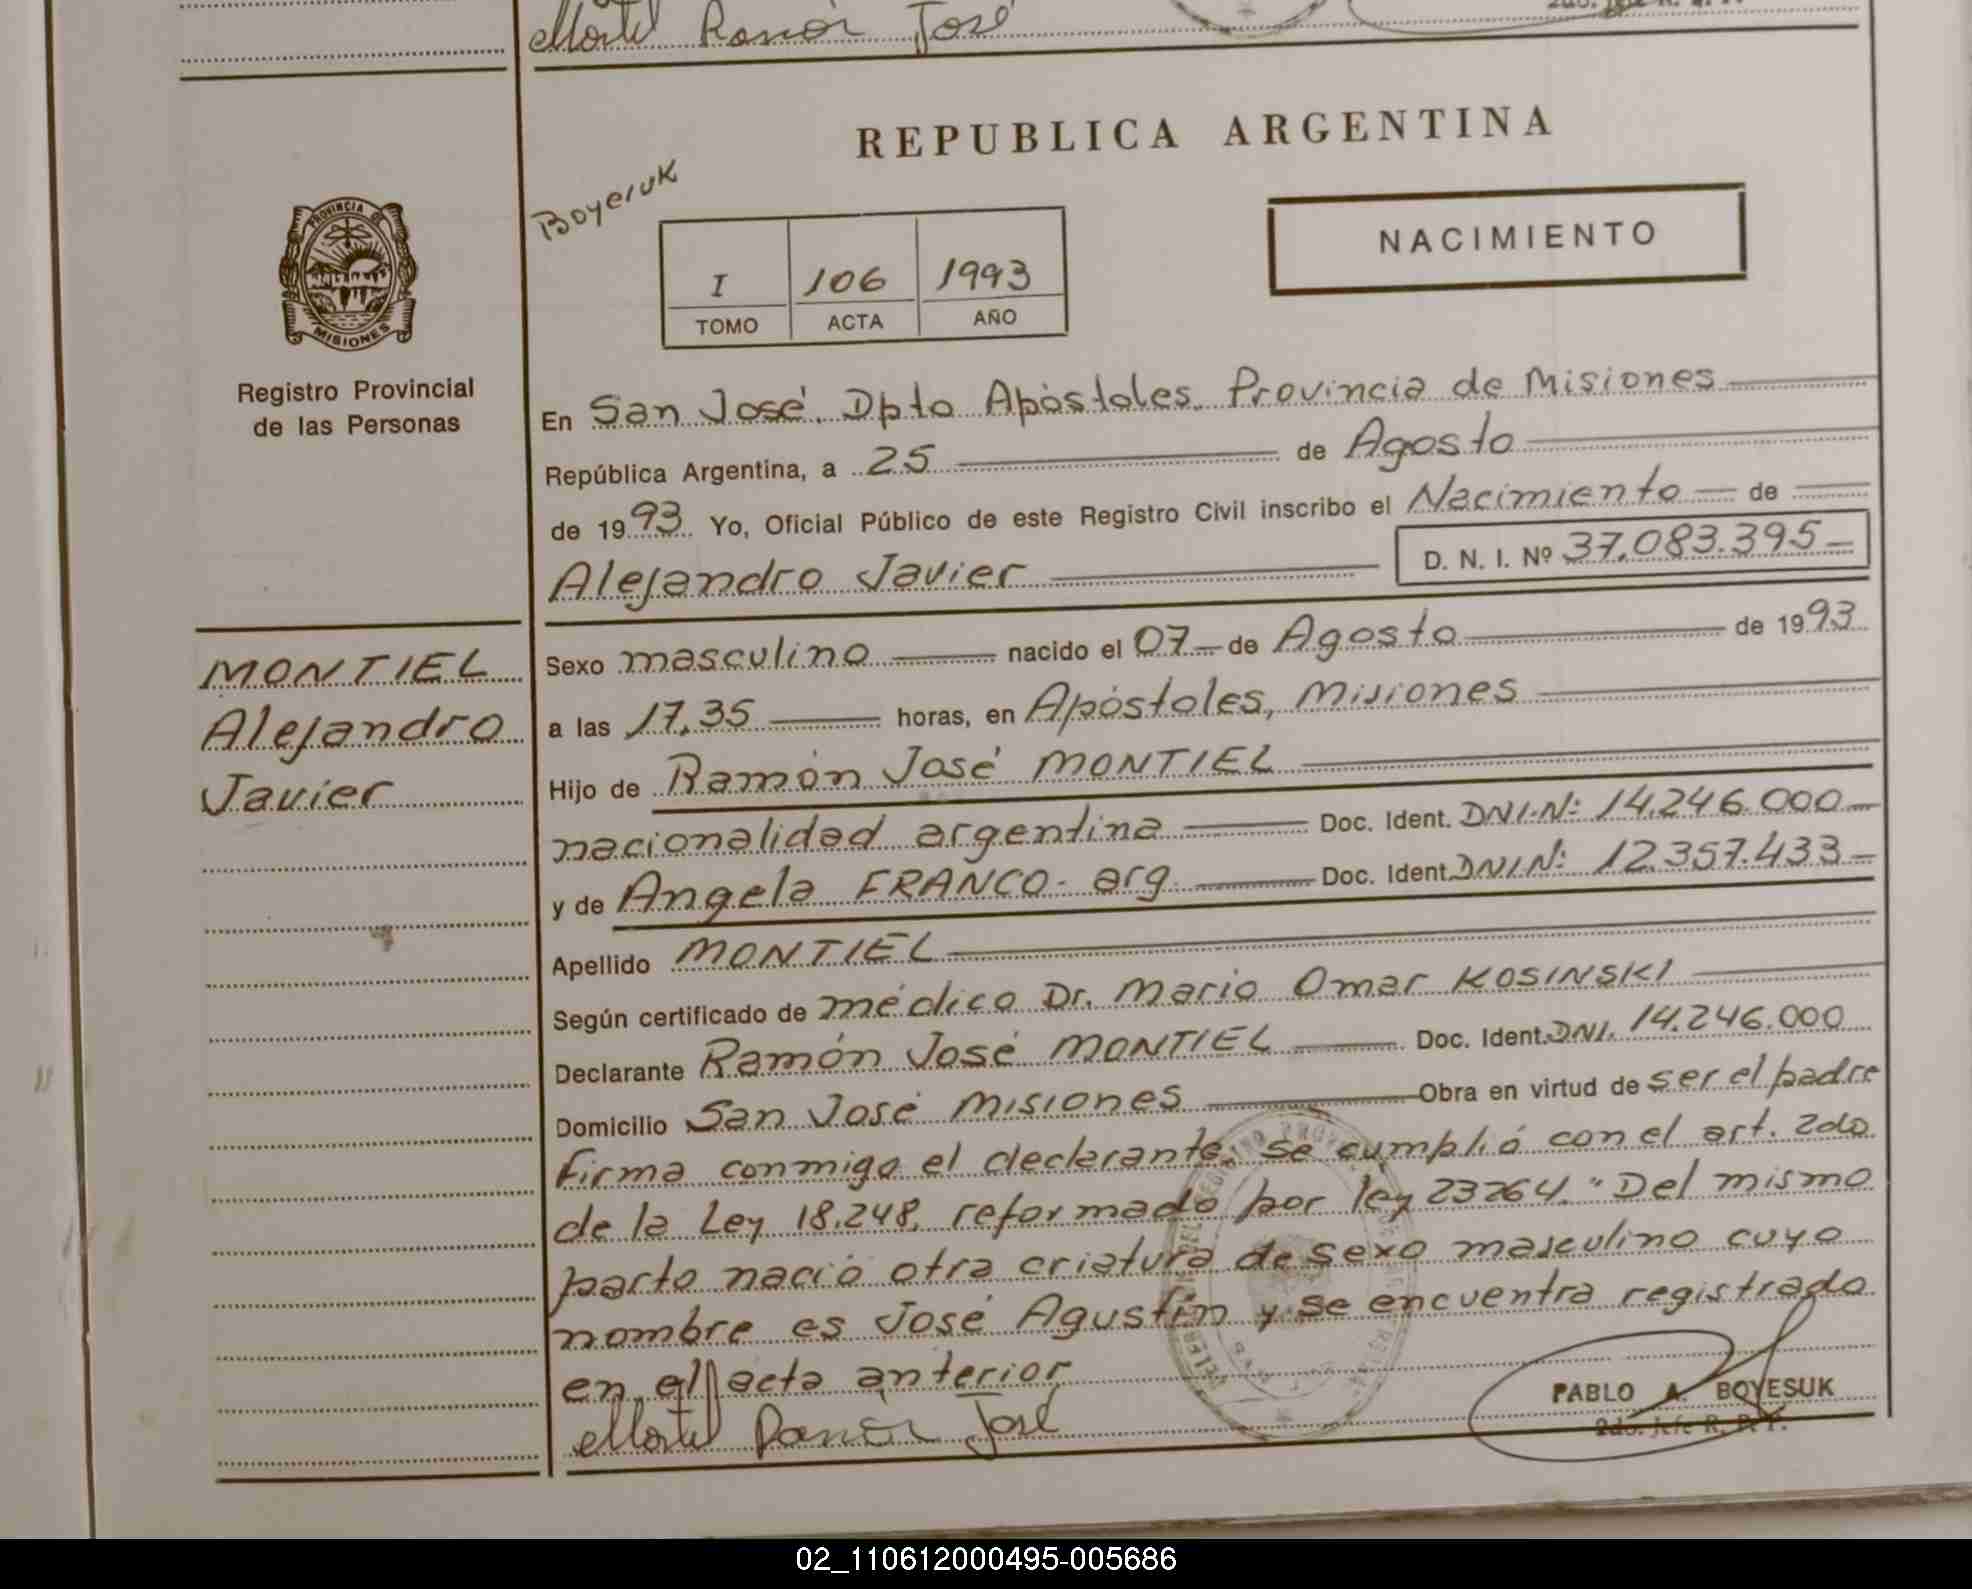 Montiel Ramón José
2do. Jefe R. P. P.
REPUBLICA ARGENTINA
Boyeruk
NACIMIENTO
I 106 1993
TOMO ACTA AÑO
PROVINCIA DE
MISIONES
Registro Provincial
de las Personas
En San José, Dpto Apóstoles, Provincia de Misiones
República Argentina, a 25 de Agosto
de 1993. Yo, Oficial Público de este Registro Civil inscribo el Nacimiento de
Alejandro Javier D. N. I. Nº 37.083.395
MONTIEL
Alejandro
Javier
Sexo masculino nacido el 07 de Agosto de 1993
a las 17,35 horas, en Apóstoles, Misiones
Hijo de Ramón José MONTIEL
nacionalidad argentina Doc. Ident. DNI.N: 14.246.000
y de Angela FRANCO- arg. Doc. Ident. DNI N: 12.357.433
Apellido MONTIEL
Según certificado de médico Dr. Mario Omar KOSINSKI
Declarante Ramón José MONTIEL Doc. Ident. DNI. 14.246.000
Domicilio San José Misiones Obra en virtud de ser el padre
firma conmigo el declarante, se cumplió con el art. 2do
de la Ley 18.248, reformado por ley 23264. "Del mismo
parto nació otra criatura de sexo masculino cuyo
nombre es José Agustín y se encuentra registrado
en el acta anterior
Montiel Ramón José
PABLO A. BOYESUK
2do. Jefe R. P. P.
02_110612000495-005686